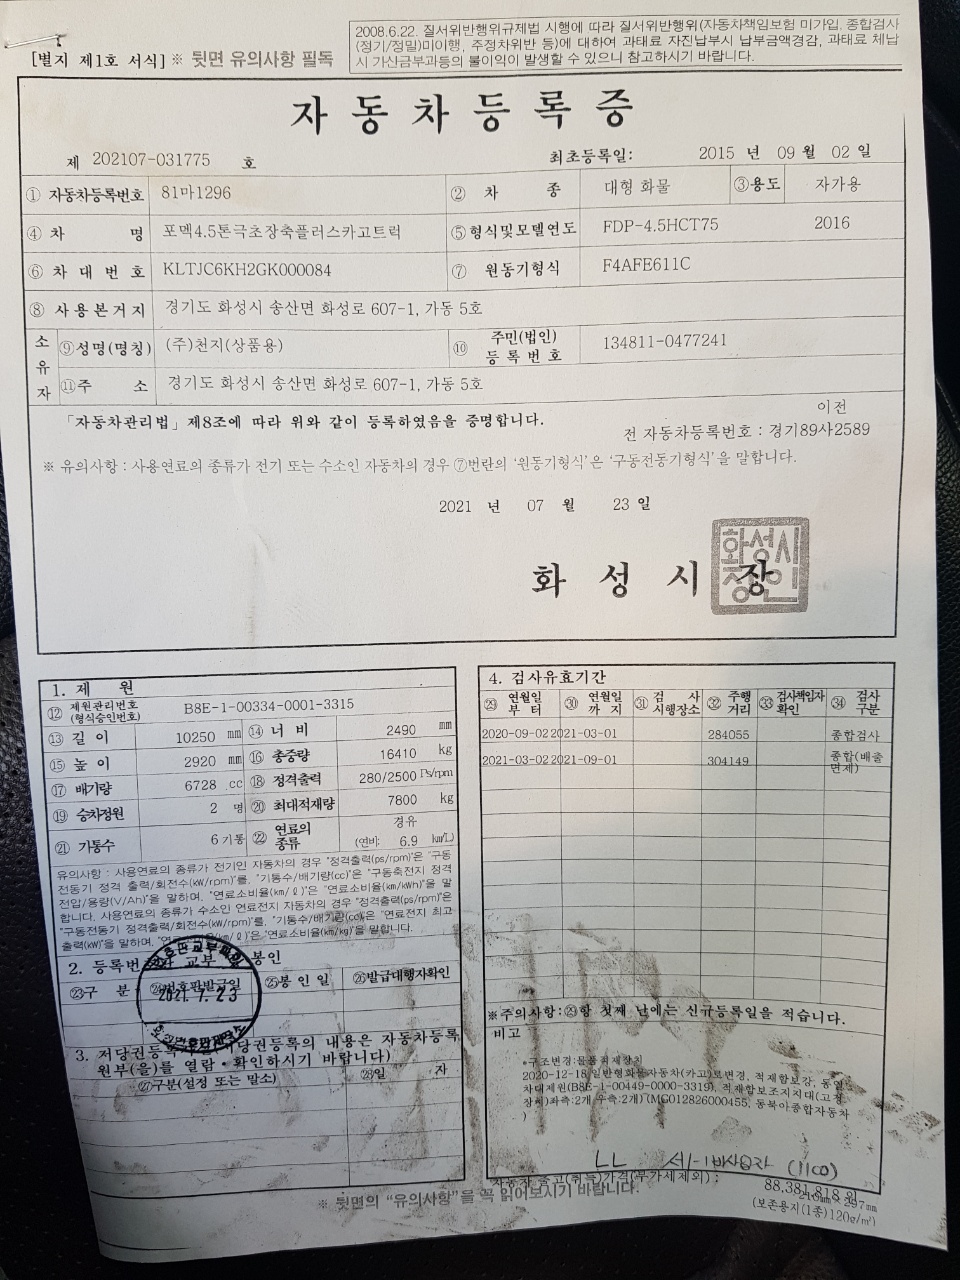 2008.6.22. 질서위반행위규제법 시행에 따라 질서위반행위(자동차책임보험 미가입, 종합검사
(정기/정밀)미이행, 주정차위반 등)에 대하여 과태료 자진납부시 납부금액경감, 과태료 체납
시 가산금부과등의 불이익이 발생할 수 있으니 참고하시기 바랍니다.
[별지 제1호 서식] ※ 뒷면 유의사항 필독
자동차등록증
제 202107-031775 호 최초등록일: 2015 년 09 월 02 일
① 자동차등록번호 81마1296 ② 차 종 대형 화물 ③용도 자가용
④ 차 명 포멕4.5톤극초장축플러스카고트럭 ⑤형식및모델연도 FDP-4.5HCT75 2016
⑥ 차대번호 KLTJC6KH2GK000084 ⑦ 원동기형식 F4AFE611C
⑧ 사용본거지 경기도 화성시 송산면 화성로 607-1, 가동 5호
소유자 ⑨성명(명칭) (주)천지(상품용) ⑩ 주민(법인)등록번호 134811-0477241
⑪주 소 경기도 화성시 송산면 화성로 607-1, 가동 5호
「자동차관리법」제8조에 따라 위와 같이 등록하였음을 증명합니다.
이전
전 자동차등록번호 : 경기89사2589
※ 유의사항 : 사용연료의 종류가 전기 또는 수소인 자동차의 경우 ⑦번란의 '원동기형식'은 '구동전동기형식'을 말합니다.
2021 년 07 월 23 일
화성시장
화성시
장인
1. 제 원
⑫ 제원관리번호(형식승인번호) B8E-1-00334-0001-3315
⑬ 길 이 10250 mm ⑭ 너 비 2490 mm
⑮ 높 이 2920 mm ⑯ 총중량 16410 kg
⑰ 배기량 6728 cc ⑱ 정격출력 280/2500 Ps/rpm
⑲ 승차정원 2 명 ⑳ 최대적재량 7800 kg
㉑ 기통수 6 기통 ㉒ 연료의 종류 경유 (연비: 6.9 km/L)
유의사항 : 사용연료의 종류가 전기인 자동차의 경우 "정격출력(ps/rpm)"은 "구동
전동기 정격 출력/회전수(kW/rpm)"를, "기통수/배기량(cc)"은 "구동축전지 정격
전압/용량(V/Ah)"을 말하며, "연료소비율(km/ℓ)"은 "연료소비율(km/kWh)"을 말
합니다. 사용연료의 종류가 수소인 연료전지 자동차의 경우 "정격출력(ps/rpm)은
"구동전동기 정격출력/회전수(kW/rpm)"를, "기통수/배기량(cc)은 "연료전지 최고
출력(kW)"을 말하며, (km/ℓ)"은 "연료소비율(km/kg)"을 말합니다.
2. 등록번호판 교부 봉인
㉓구 분 ㉔번호판발급일 ㉕봉인일 ㉖발급대행자확인
2021. 7. 23
3. 저당권등록 (저당권등록의 내용은 자동차등록
원부(을)를 열람·확인하시기 바랍니다)
㉗구분(설정 또는 말소) ㉘일 자
4. 검사유효기간
㉙ 연월일부터 ㉚ 연월일까지 ㉛ 검사시행장소 ㉜ 주행거리 ㉝ 검사책임자확인 ㉞ 검사구분
2020-09-02 2021-03-01 284055 종합검사
2021-03-02 2021-09-01 304149 종합(배출면제)
※주의사항:㉙항 첫째 난에는 신규등록일을 적습니다.
비고
*구조변경:물품적재장치
2020-12-18,일반형화물자동차(카고)로변경, 적재함보강, 동일
차대제원(B8E-1-00449-0000-3319), 적재함보조지지대(고정
장치)좌측:2개,우측:2개) (MG012826000455, 동북아종합자동차
)
(1100)
자동차 출고(취득)가격(부가세제외) : 88,381,818 원
210mm×297mm
(보존용지(1종)120g/㎡)
※ 뒷면의 "유의사항"을 꼭 읽어보시기 바랍니다.